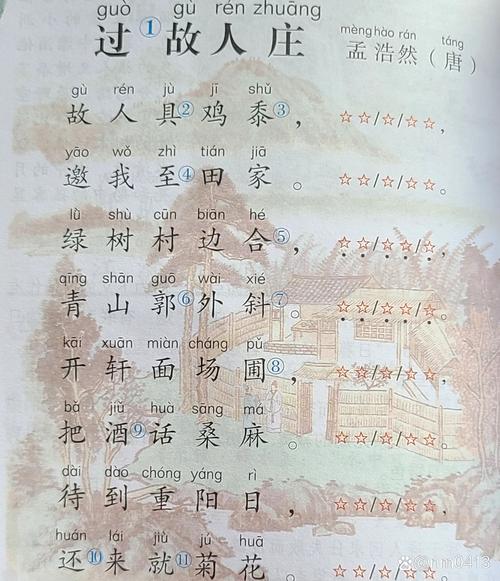 guò gù rén zhuāng
过①故人庄
mèng hào rán táng
孟浩然（唐）
gù rén jù jī shǔ
故人具②鸡黍③， ☆☆/☆/☆☆，
yāo wǒ zhì tián jiā
邀我至④田家。 ☆☆/☆/☆☆。
lǜ shù cūn biān hé
绿树村边合⑤， ☆☆/☆☆/☆，
qīng shān guō wài xié
青山郭⑥外斜⑦。 ☆☆/☆☆/☆。
kāi xuān miàn cháng pǔ
开轩面场圃⑧， ☆☆/☆/☆☆，
bǎ jiǔ huà sāng má
把酒⑨话桑麻。 ☆☆/☆/☆☆。
dài dào chóng yáng rì
待到重阳日， ☆☆/☆☆/☆，
huán lái jiù jú huā
还⑩来就⑪菊花。 ☆☆/☆/☆☆。
@nm0413